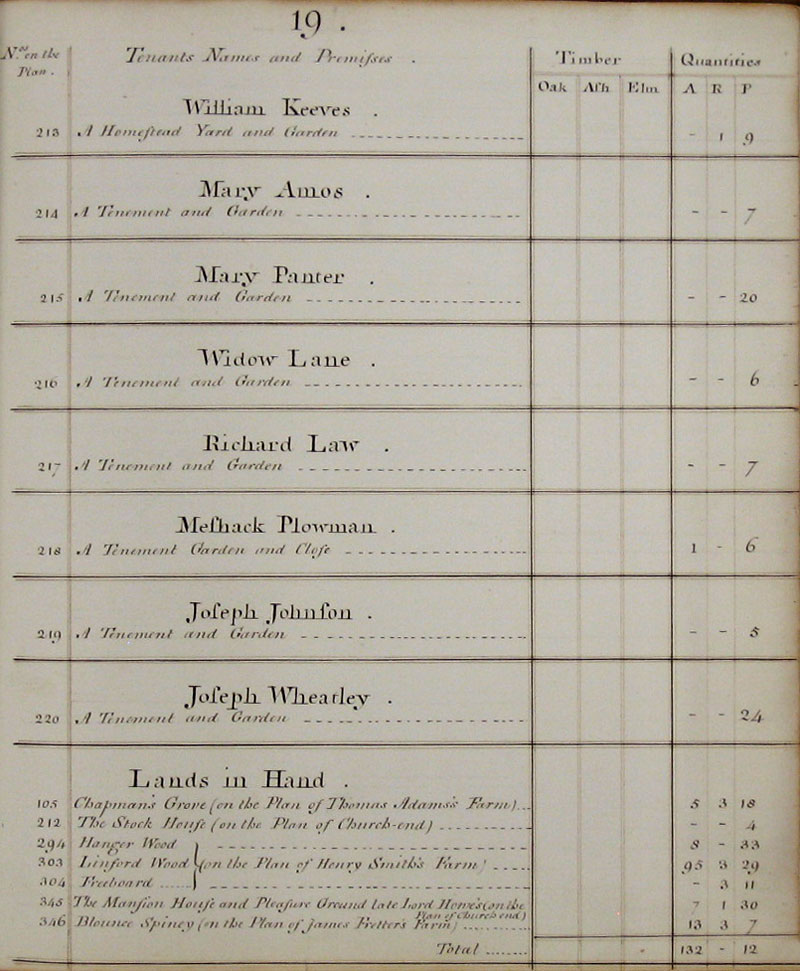 19 .
N.os on the Plan . Tenants Names and Premiſses . Timber Quantities
Oak Aſh Elm A R P
William Keeves .
213 A Homeſtead Yard and Garden - 1 9
Mary Amos .
214 A Tenement and Garden - - 7
Mary Panter .
215 A Tenement and Garden - - 20
Widow Lane .
216 A Tenement and Garden - - 6
Richard Law .
217 A Tenement and Garden - - 7
Meſhack Plowman .
218 A Tenement Garden and Cloſe 1 - 6
Joſeph Johnſon .
219 A Tenement and Garden - - 5
Joſeph Whearley .
220 A Tenement and Garden - - 24
Lands in Hand .
105 Chapman's Grove (on the Plan of Thomas Adams's Farm) 5 3 18
212 The Stock Houſe (on the Plan of Church-end) - - 4
294 Hanger Wood 8 - 33
303 Linford Wood (on the Plan of Henry Smith's Farm) 95 3 29
304 Freeboard - 3 11
345 The Manſion Houſe and Pleaſure Ground late Lord (on the 7 1 30
Plan of Church end)
346 Spiney (on the Plan of James Farm) 13 3 7
Total 132 - 12